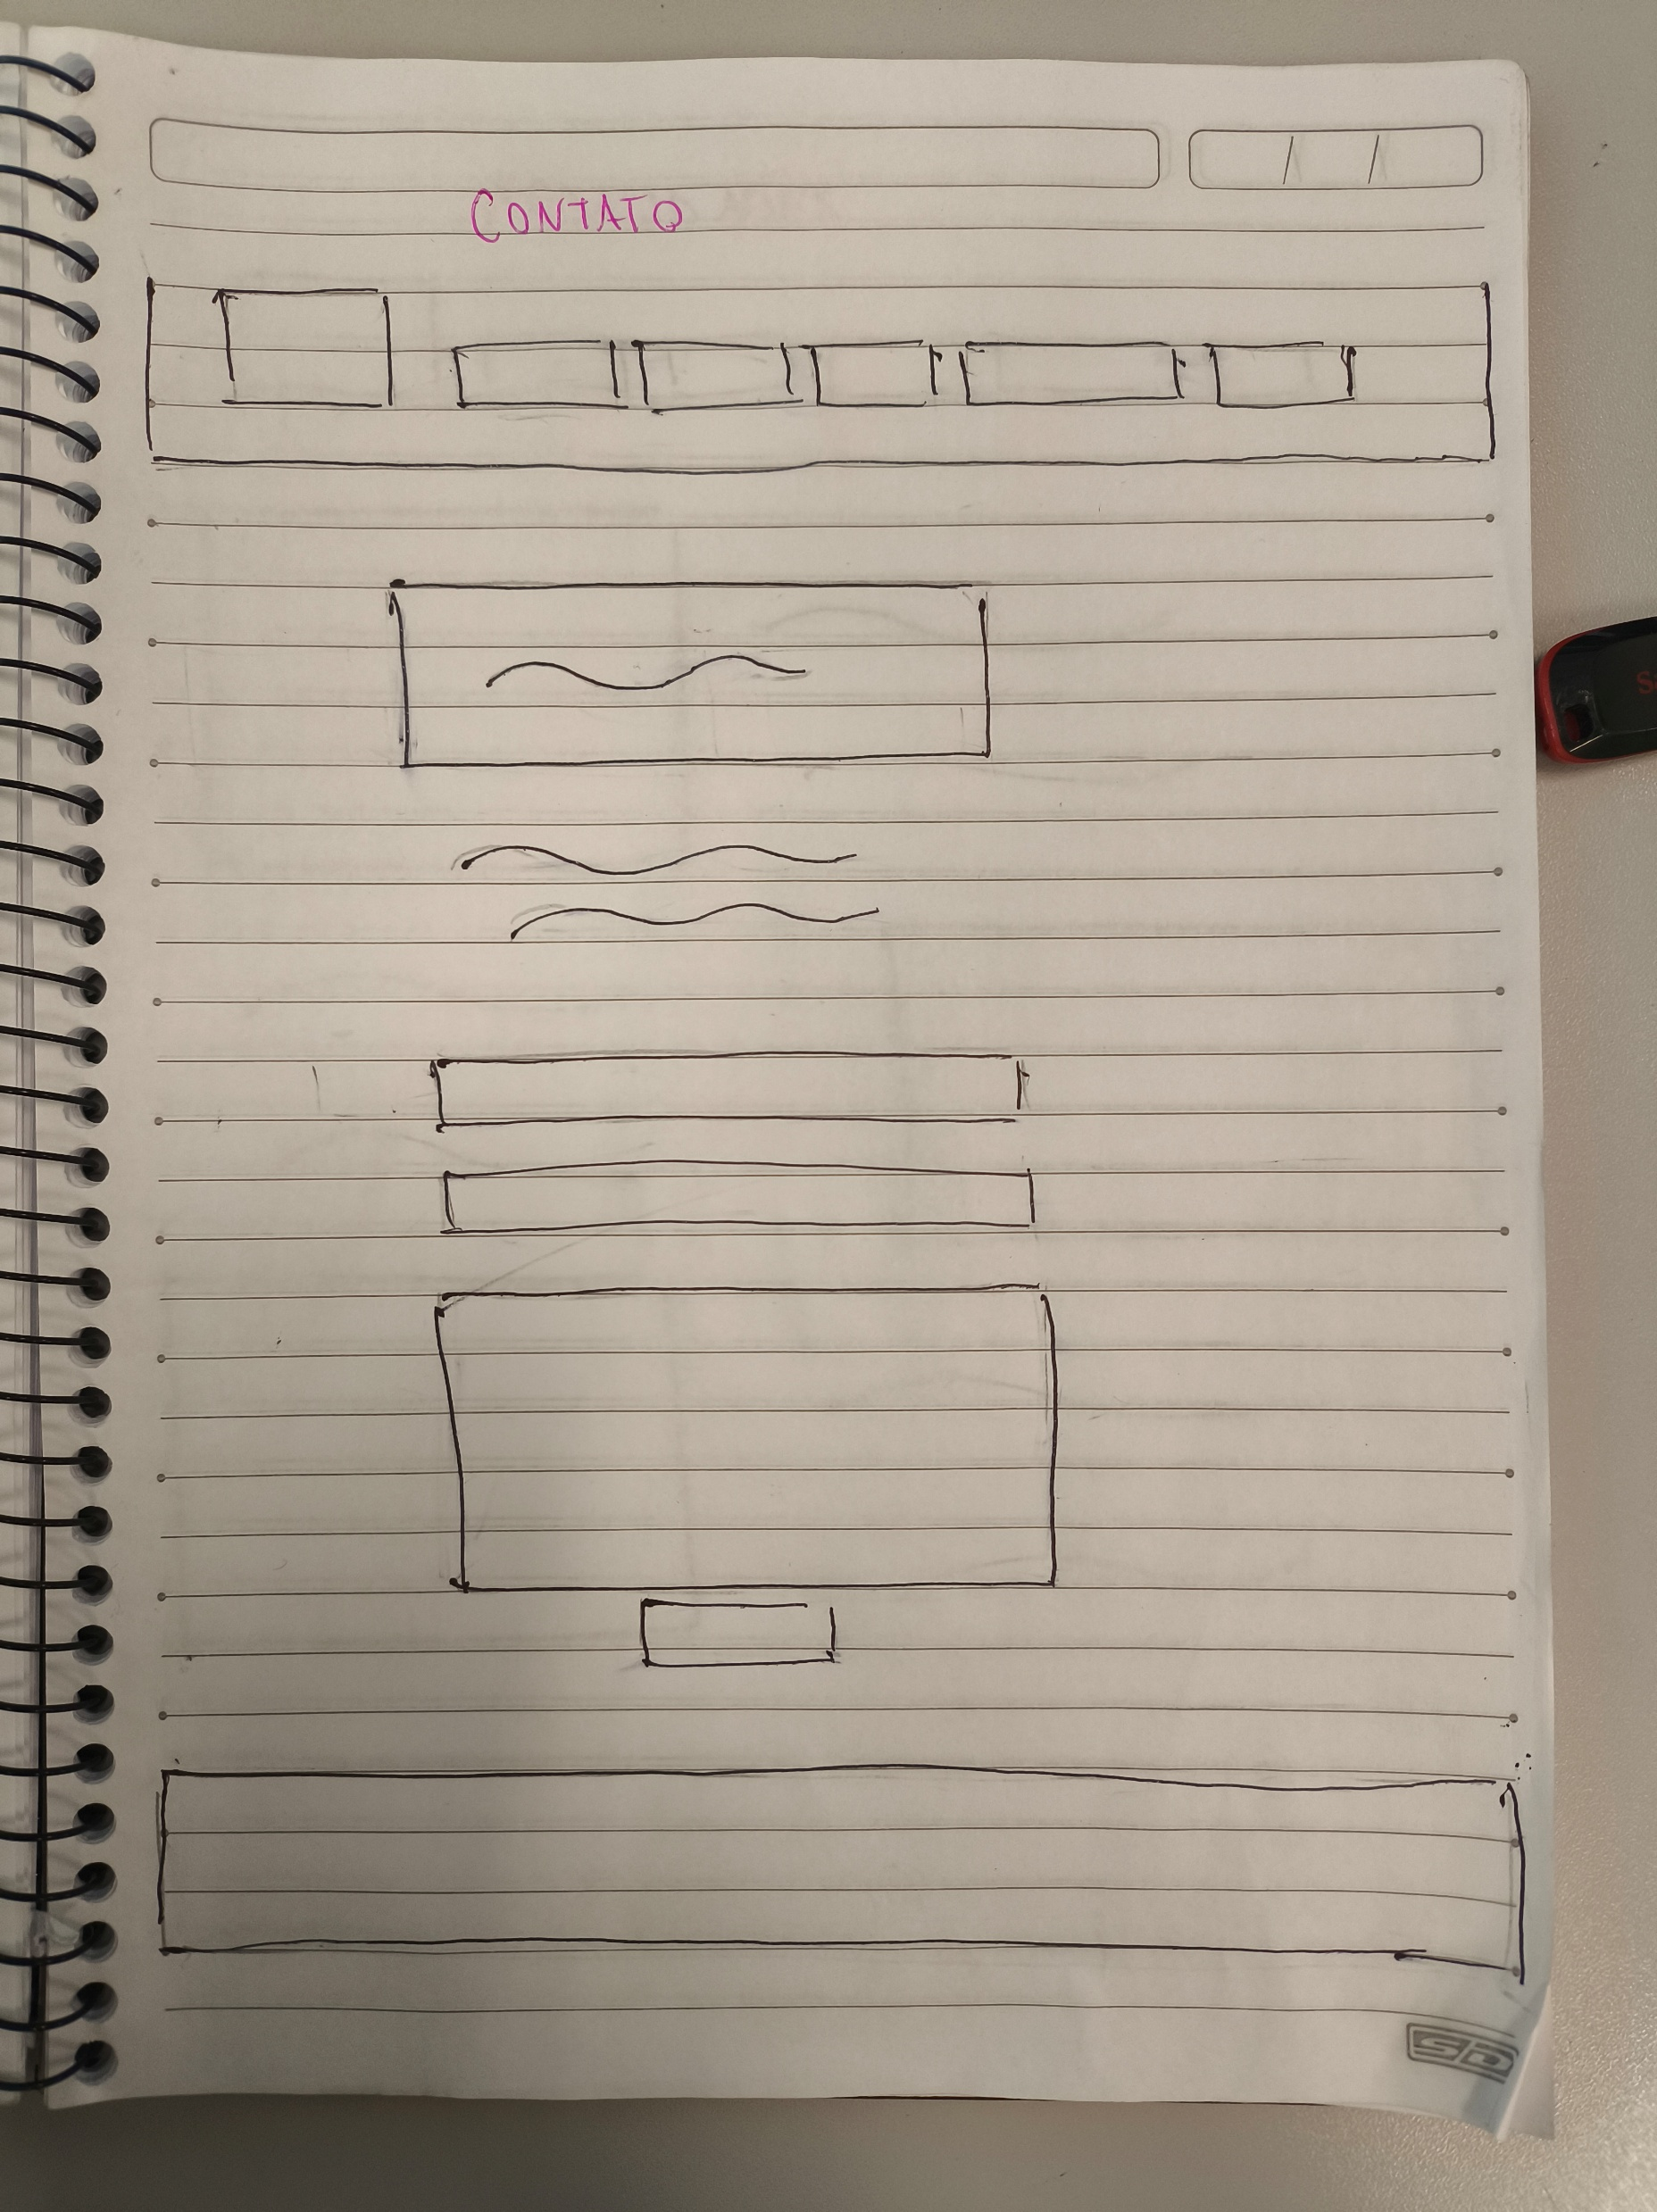 CONTATO
/ /
SD